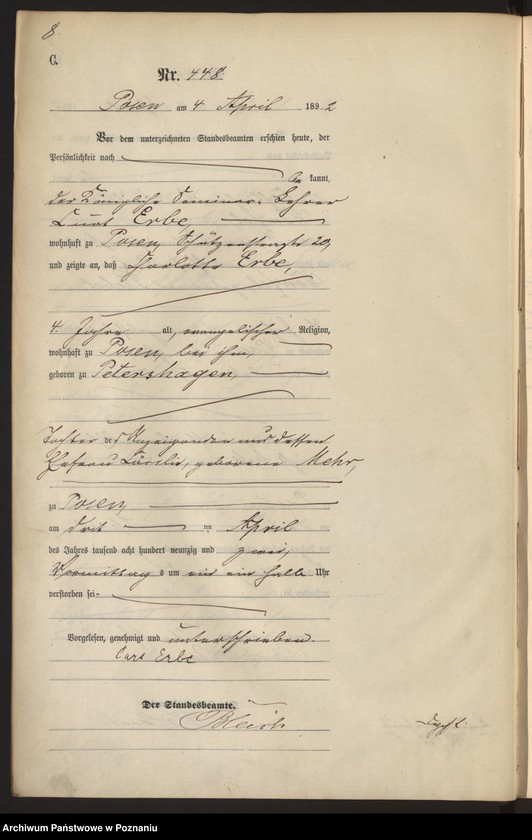 8
C.
Nr. 448.
Posen am 4 April 1892
Vor dem unterzeichneten Standesbeamten erschien heute, der
Persönlichkeit nach
be kannt,
der Königliche Seminar-Lehrer
Curt Erbe,
wohnhaft zu Posen, Schützenstraße 20,
und zeigte an, daß Charlotte Erbe,
4 Jahre alt, evangelischer Religion,
wohnhaft zu Posen, bei ihm,
geboren zu Petershagen,
Tochter des Anzeigenden und dessen
Ehefrau Cäcilie, geborene Mehr,
zu Posen,
am drit ten April
des Jahres tausend acht hundert neunzig und zwei,
Vormittag s um ein ein halb Uhr
verstorben sei.
Vorgelesen, genehmigt und unterschrieben.
Curt Erbe
Der Standesbeamte.
Archiwum Państwowe w Poznaniu